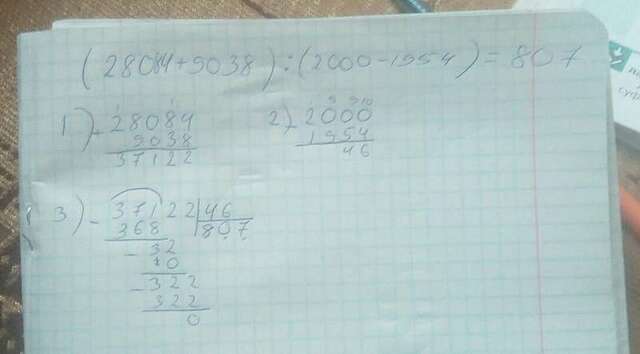 (28084+9038):(2000-1954)=807
1) + 28084
9038
37122
2) - 2000
1954
46
3) - 37122 | 46
368 | 807
- 32
0
- 322
322
0